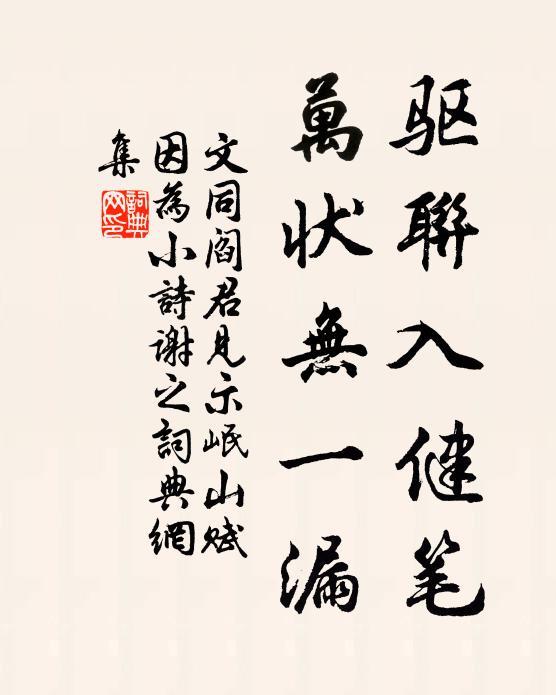 驱聯入健笔
萬状無一漏
文同阎君見示岷山赋
因為小詩謝之詞典網
集
詞典
网印